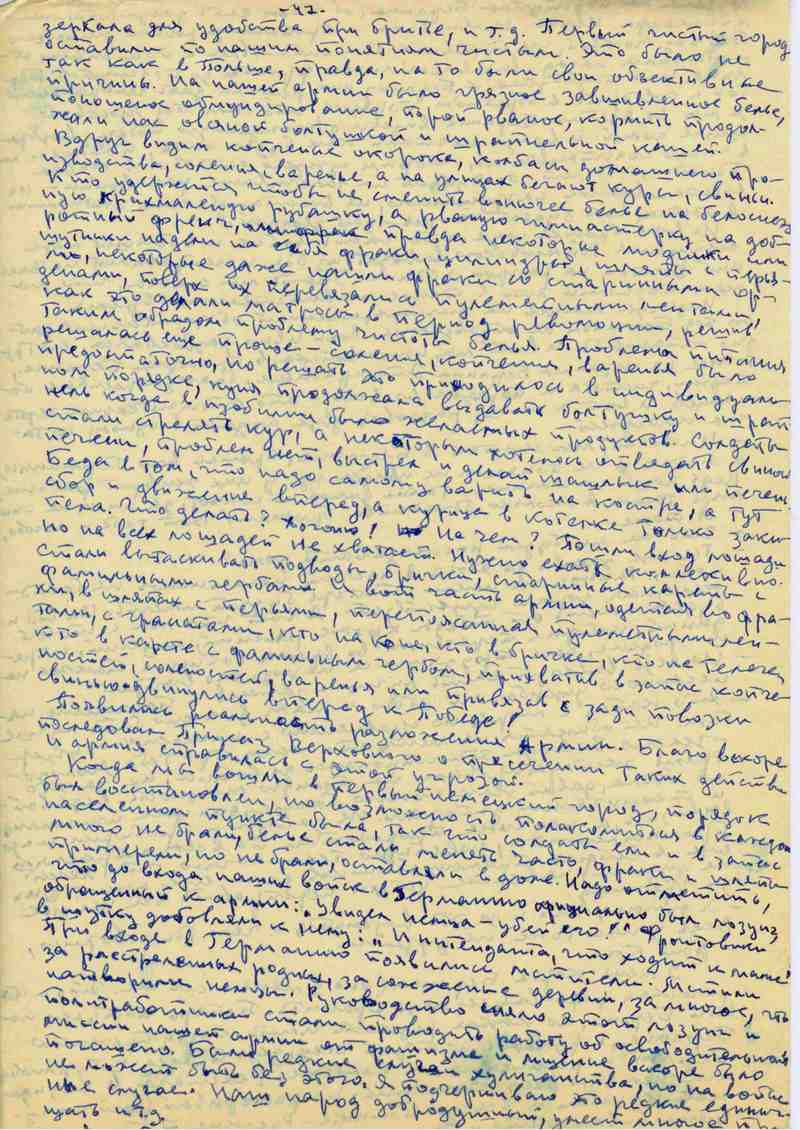 -42-
зеркала для удобства при бритье, и т.д. Первый чистый город
оставили по нашим понятиям чистым. Это было не
так как в Польше, правда, на то были свои объективные
причины. На нашей армии было грязное завшивленное белье,
поношеное обмундирование, порой рваное, кормить продол-
жали нас овсяной болтушкой и шрапнельной кашей.
Вдруг видим копченые окорока, колбасы домашнего про-
изводства, соления, варенье, а на улицах бегают куры, свиньи.
Кто удержится чтобы не сменить вонючее белье на белоснеж
ную крахмаленую рубашку, а рваную гимнастерку на доб-
ротный френч, правда некоторые модники или
шутники надели на себя фраки, цилиндры, шляпы с перья-
ми, некоторые даже нашли фраки со старинными ор-
денами, поверх их перевязались пулеметными лентами
как это делали матросы в период революции, решив
таким образом проблему чистоты белья. Проблема питания
решалась еще проще - соления, копчения, варенья было
предостаточно, но решать это приходилось в индивидуаль
ном порядке, кухня продолжала выдавать болтушку и шрап
нель когда в изобилии было желаемых продуктов. Солдаты
стали стрелять кур, а некоторым хотелось отведать свиной
печени, проблем нет, выстрел и делай шашлык или печень
Беда в том, что надо самому варить на костре, а тут
сбор и движение вперед, а курица в котелке только заки-
пела. Что делать? Догоню! На чем? Пошли вход лошади
но на всех лошадей не хватает. Нужно ехать коллективно.
Стали вытаскивать подводы, брички, старинные кареты с
фамильными гербами и вот часть армии, одетая во фра-
ки, в шляпах с перьями, перепоясанная пулеметными лен-
тами, с гранатами, кто на коне, кто в бричке, кто на телеге
кто в карете с фамильным гербом, прихватив в запас копче
ностей, солёностей, варенья или привязав с зади повозки
свинью двинулись вперед к Победе!
Появилась реальность разложения Армии. Благо вскоре
последовал Приказ Верховного о пресечении таких действи
и армия справилась с этой угрозой.
Когда мы вошли в первый немецкий город, порядок
был восстановлен, но возможность полакомиться в каждом
населенном пункте была, так что солдаты ели и в запас
много не брали, белье стали менять часто, фраки и шляпы
примеряли, но не брали, оставляли в доме. Надо отметить,
что до входа наших войск в Германию официально был лозунг,
обращенный к армии: „Увидел немца - убей его!" Фронтовики
в шутку добавляли к нему: „И интенданта, что ходит к маме!"
При входе в Германию появились мстители. Мстили
за расстрелянных родных, за сожженые деревни, за многое, что
натворили немцы. Руководство сняло этот лозунг и
политработники стали проводить работу об освободительной
миссии нашей армии от фашизма и мщение вскоре было
погашено. Были редкие случаи хулиганства, но на войне
не может быть без этого. Я подчеркиваю это редкие единич
ные случае. Наш народ добродушный, умеет многое про
щать и т.д.